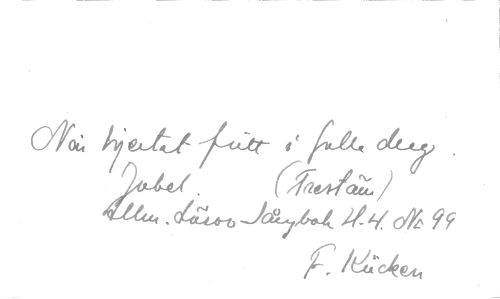 När hjertat fritt i fulla drag.
Jubel. (Trestäm)
Allm. Läsov Sångbok H.4. Nr 99
F. Kücken